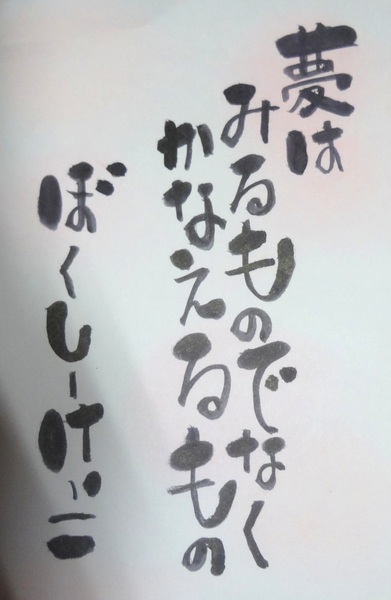 夢は
みるものでなく
かなえるもの
ぼくしーけい二